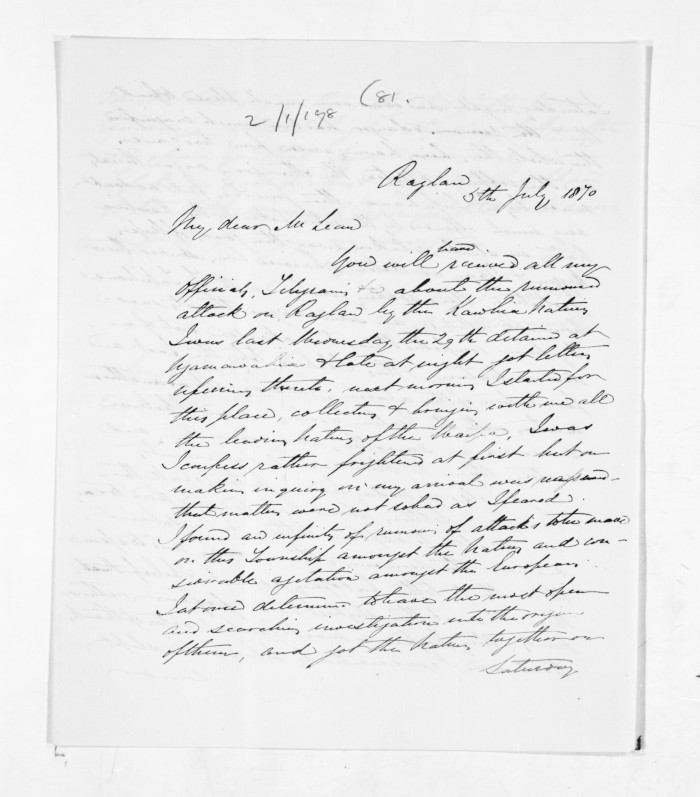 (81.
2/1/198
Raglan
5th July 1870
My dear McLean
have
You will received all my
Officials, Telegrams &c about the rumoured
attack on Raglan by the Kawhia Natives
I was last Wednesday the 29th detained at
Ngaruawahia & late at night got letters
referring thereto, next morning I started for
this place, collecting & bringing with me all
the leading Natives of the Waipa, I was
I confess rather frightened at first but on
making inquiry on my arrival was
that matters were not so bad as I feared.
I found an infinity of rumours of attacks to be made
on this Township amongst the Natives and con-
siderable agitation amongst the Europeans.
I at once determined to have the most open
and searching investigation into the origin
of them, and got the Natives together on
Saturday